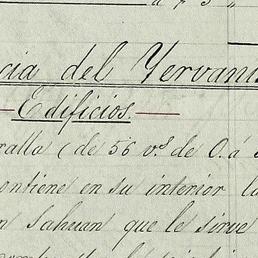 cia del Yervani
Edificios.
ralla (de 56 v.s de O. á
ontiene en su interior la
n Sahuan que le sirve